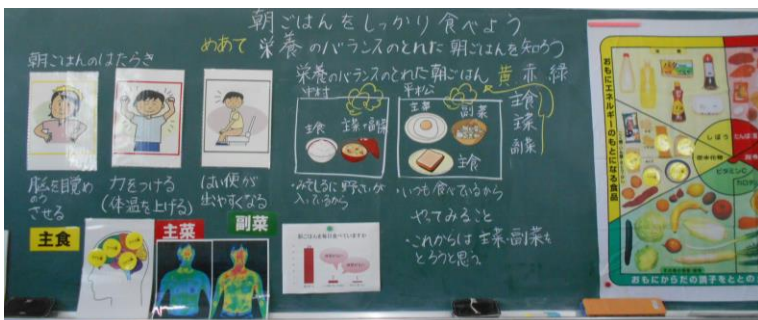 朝ごはんをしっかり食べよう
めあて 栄養のバランスのとれた朝ごはんを知ろう
朝ごはんのはたらき
脳を目覚め
させる
力をつける
(体温を上げる)
はい便が
出やすくなる
主食
主菜
副菜
栄養のバランスのとれた朝ごはん 黄 赤 緑
中村
主食
・みそしるに野さいが
入っているから
平松
主菜
副菜
主食
・いつも食べているから
主食
主菜
副菜
やってみること
・これからは主菜・副菜も
とろうと思う
朝ごはんを毎日食べていますか
おもにエネルギーのもとになる食品
しぼう
たんぱく
炭水化物
ビタミンC
おもにからだの調子をととの